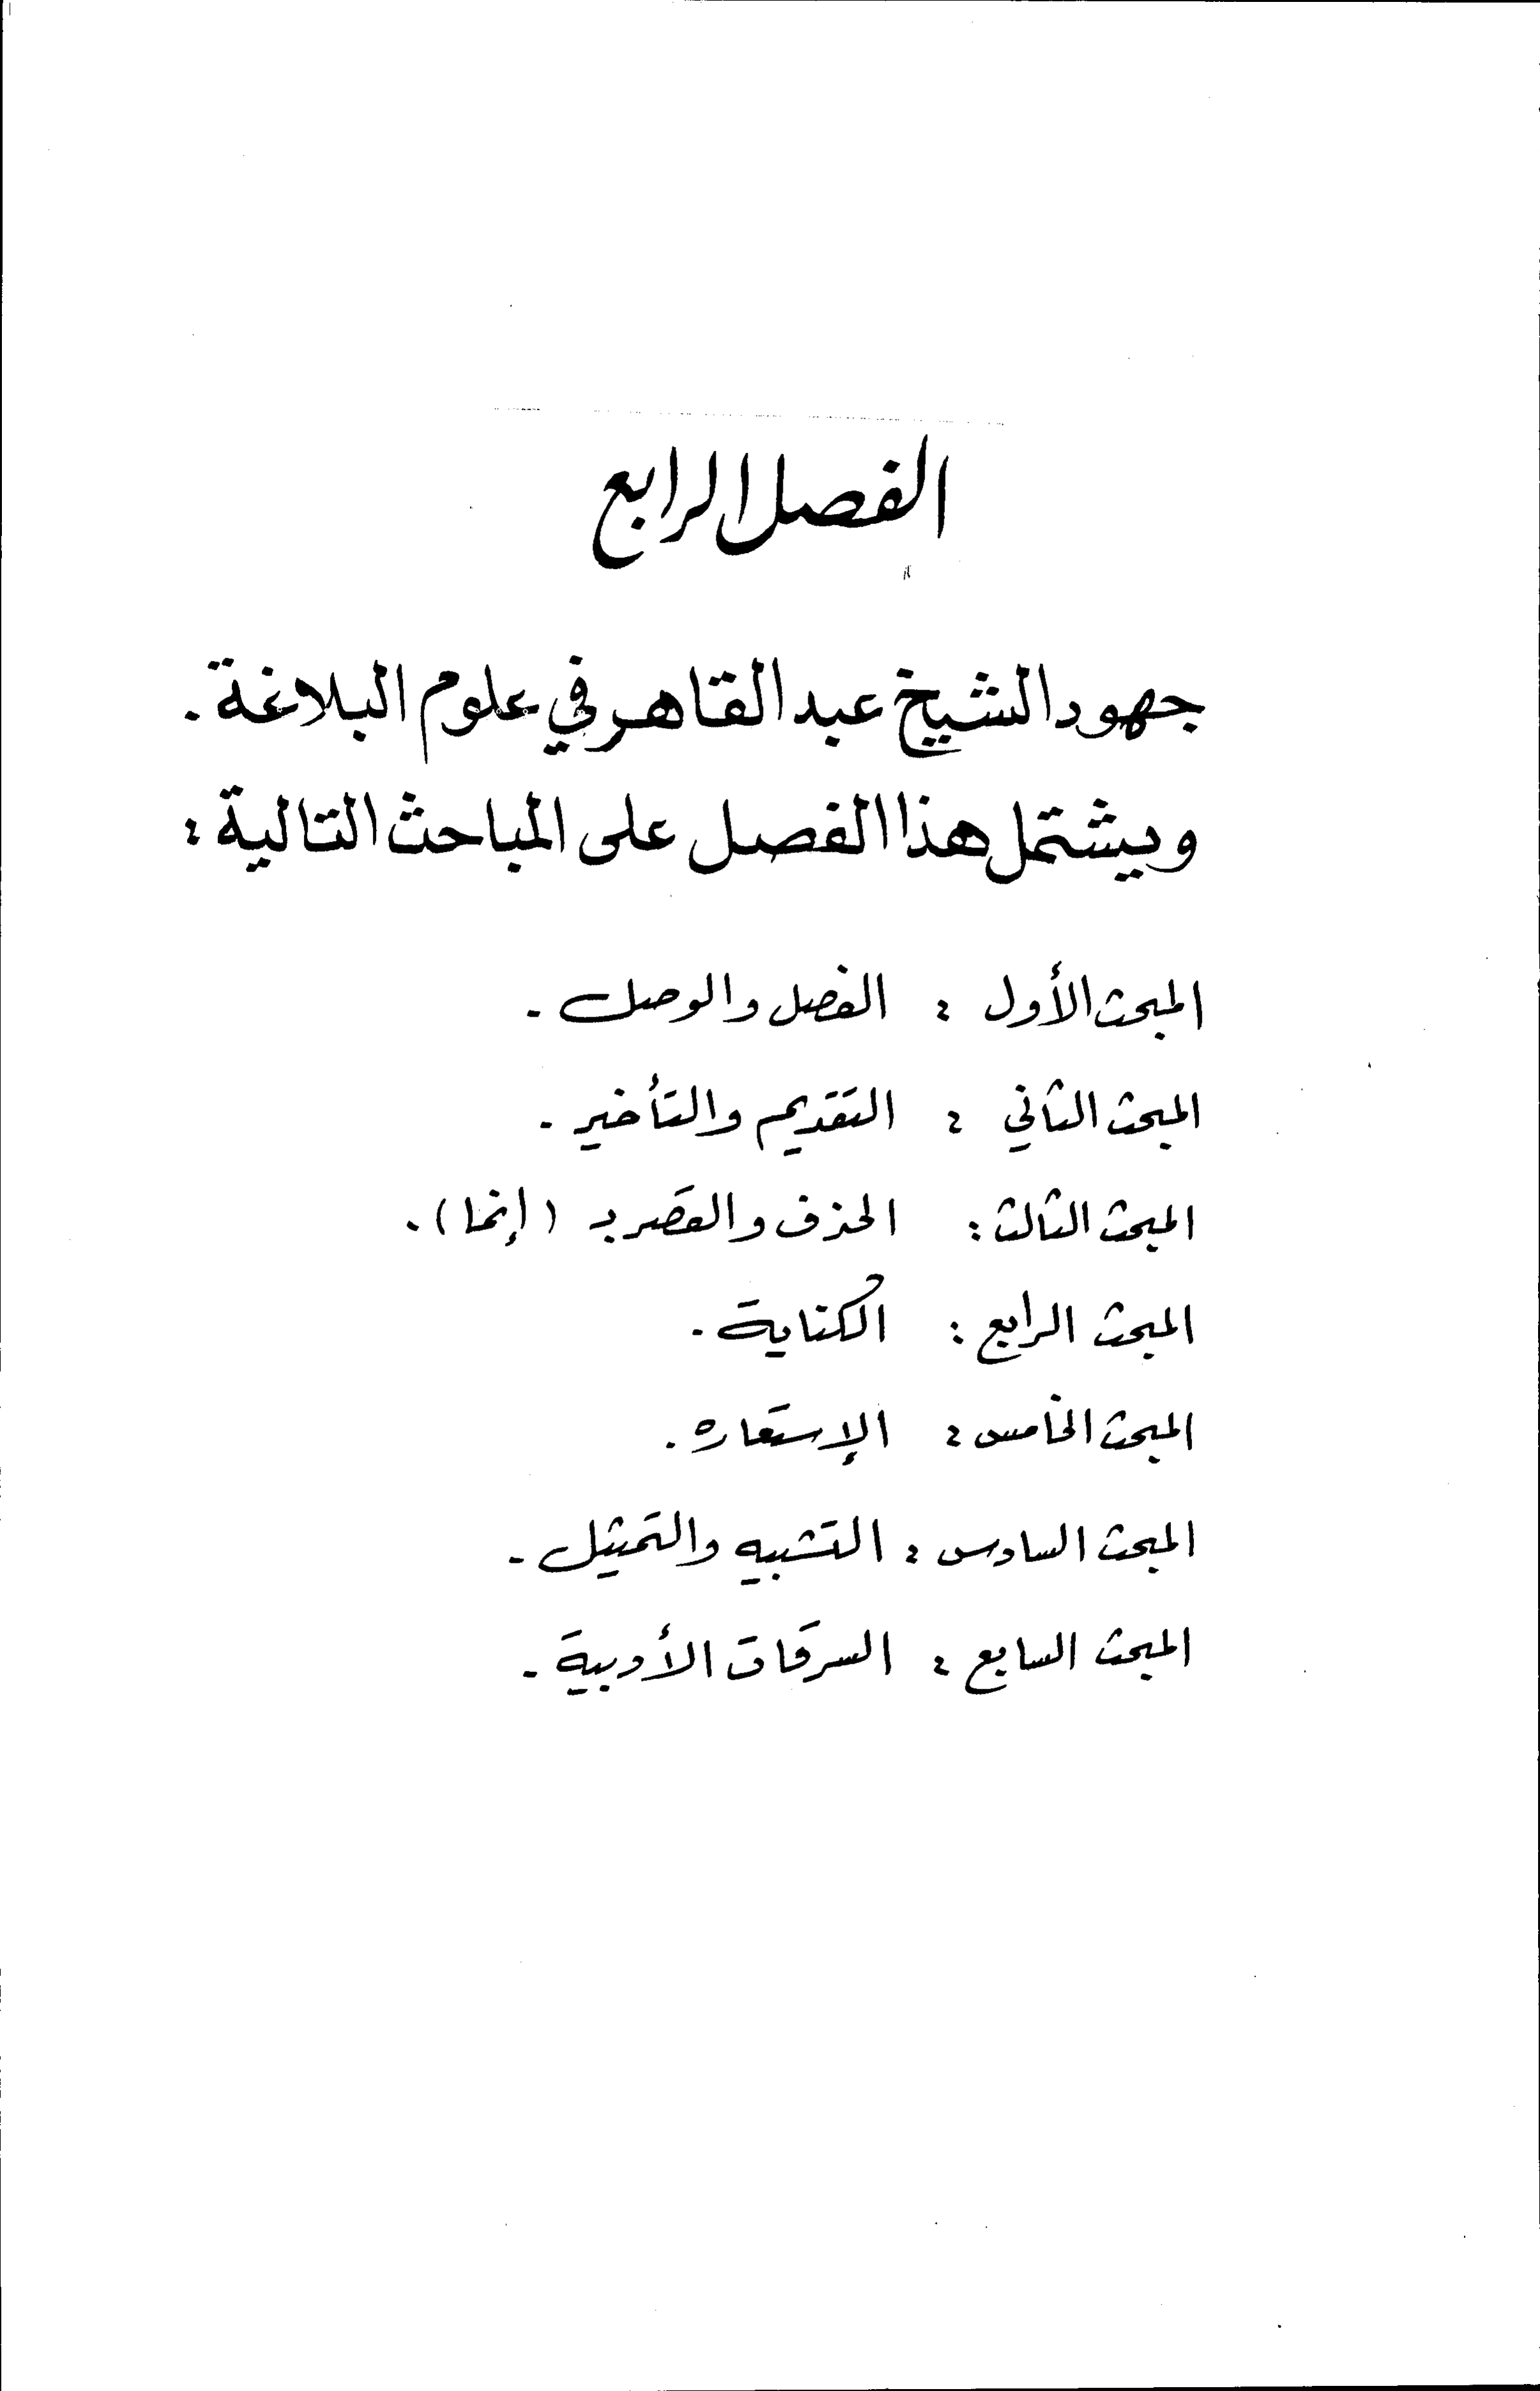 الفصل الرابع
جهود الشيخ عبد القاهر في علوم البلاغة .
ويشتمل هذا الفصل على المباحث التالية :
المبحث الأول : الفصل والوصل .
المبحث الثاني : التقديم والتأخير .
المبحث الثالث : الحذف والقصر بـ (إنما) .
المبحث الرابع : الكناية .
المبحث الخامس : الإستعاره .
المبحث السادس : التشبيه والتمثيل .
المبحث السابع : السرقات الأدبية .